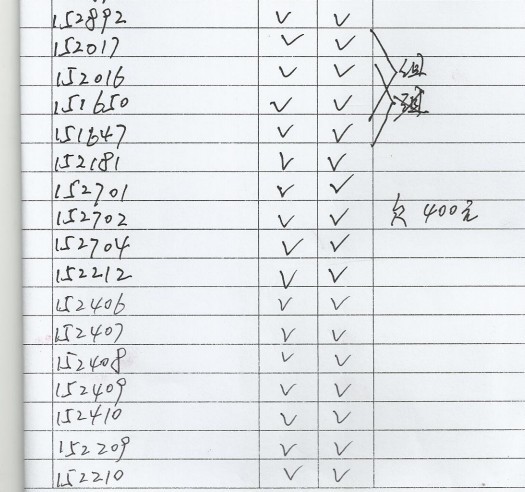 152892 ✓ ✓
152017 ✓ ✓
152016 ✓ ✓ 组
151650 ✓ ✓ 组
151647 ✓ ✓
152181 ✓ ✓
152701 ✓ ✓
152702 ✓ ✓ 欠 400元
152704 ✓ ✓
152212 ✓ ✓
152406 ✓ ✓
152407 ✓ ✓
152408 ✓ ✓
152409 ✓ ✓
152410 ✓ ✓
152209 ✓ ✓
152210 ✓ ✓